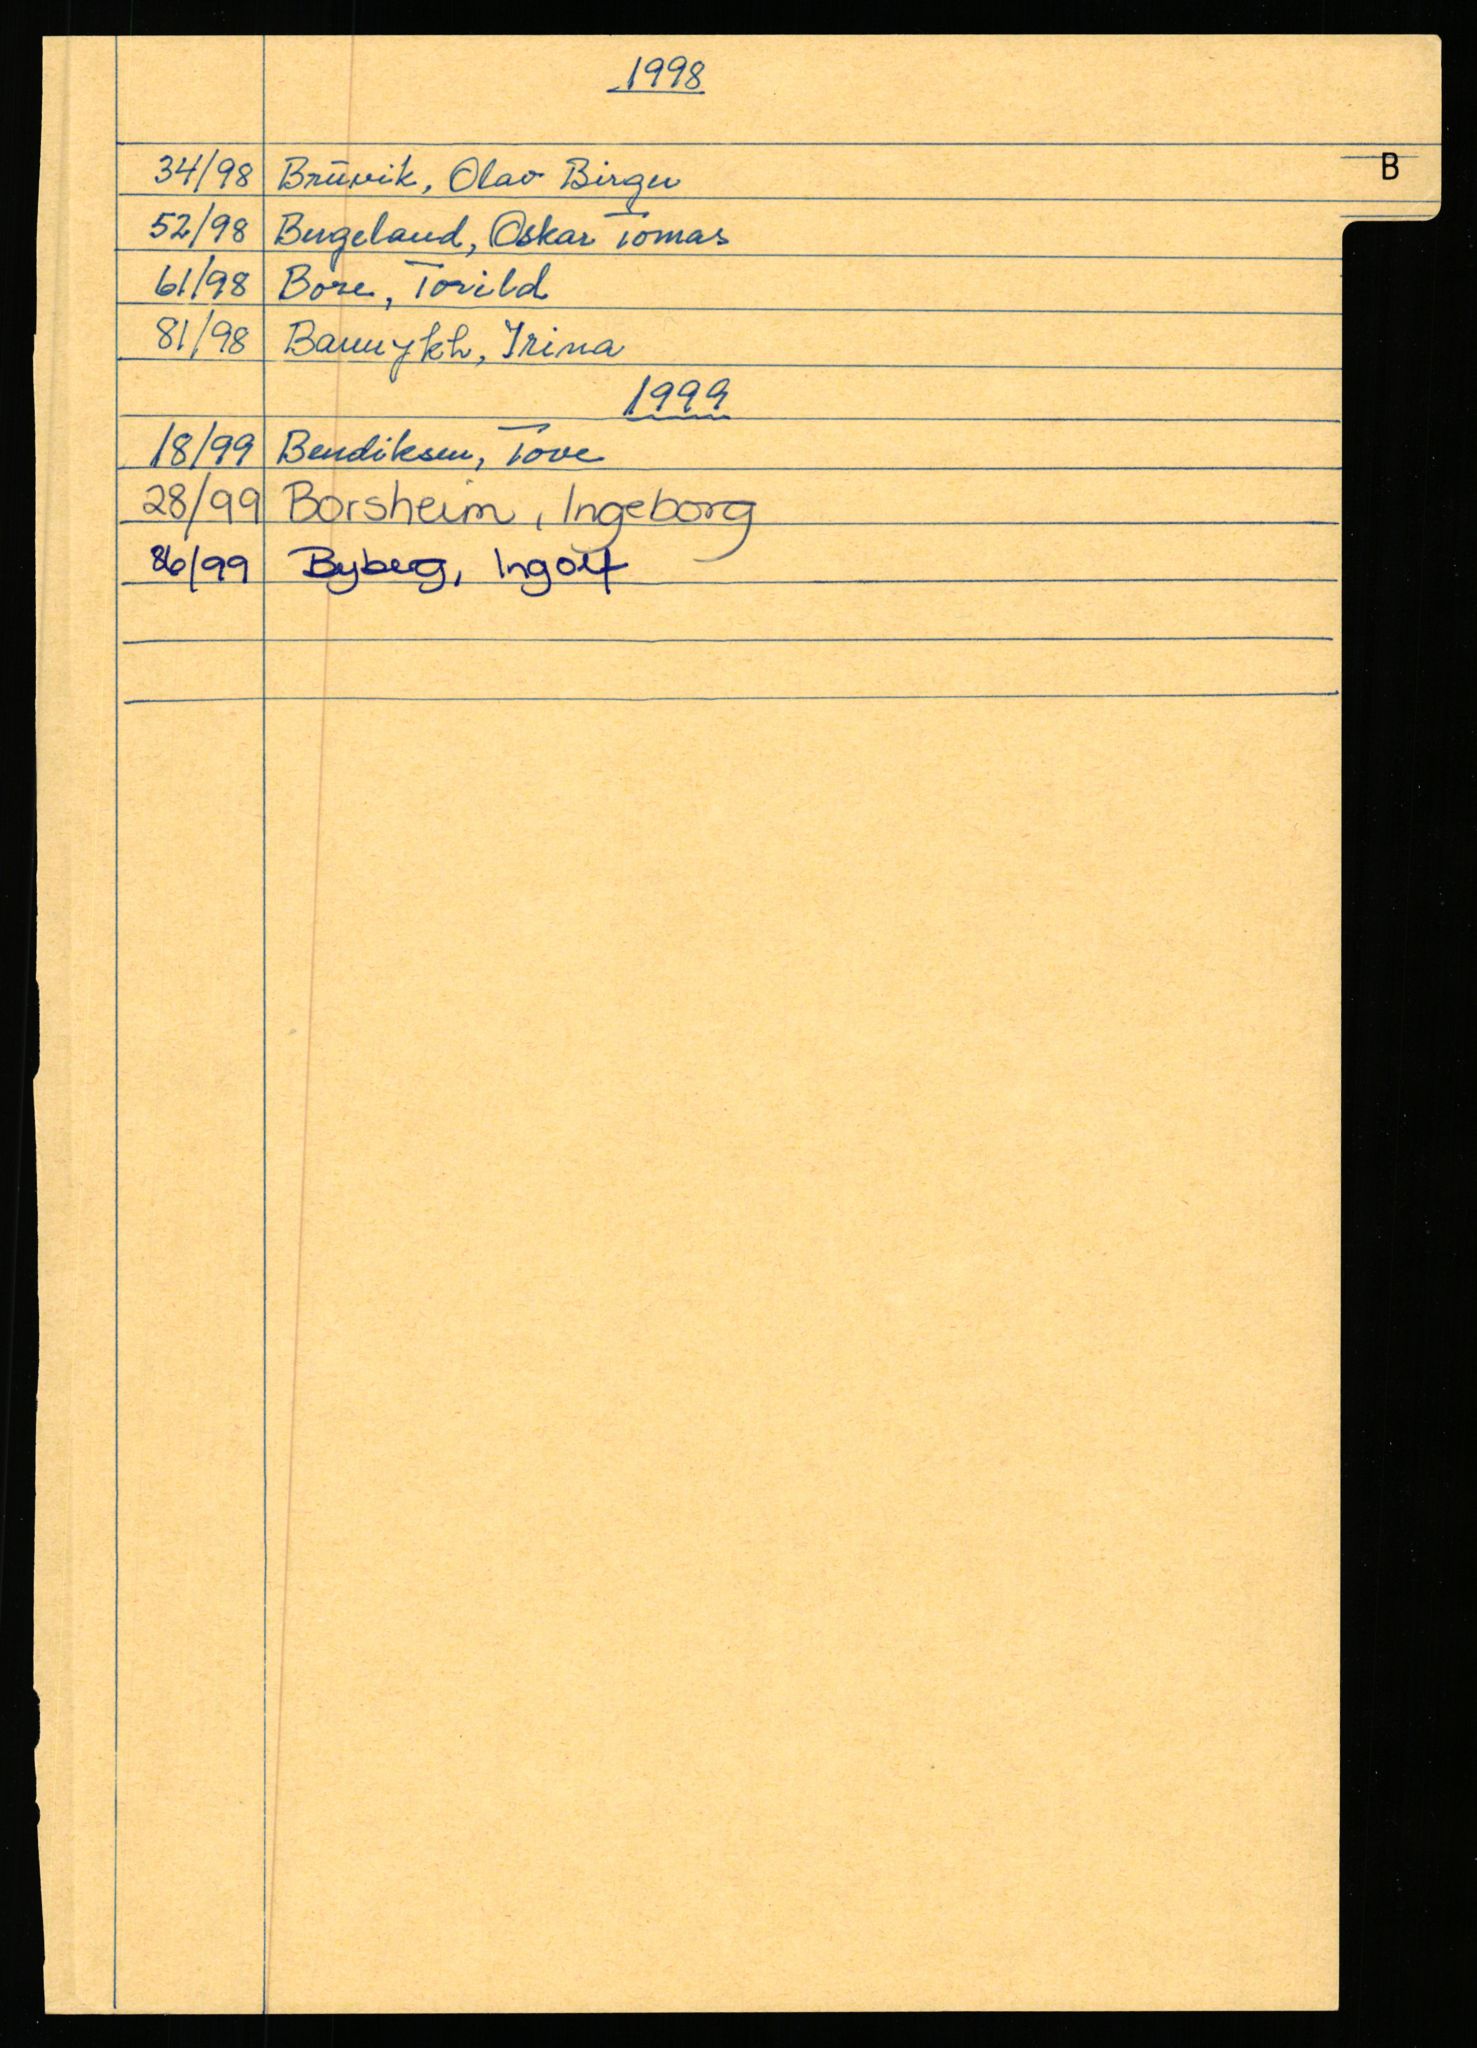 1998
B
34/98 Brüvik, Olav Birger
52/98 Bergeland, Oskar Tomas
61/98 Bore, Torild
81/98 Bannykh, Irina
1999
18/99 Bendiksen, Tove
28/99 Borsheim, Ingeborg
86/99 Byberg, Ingolf